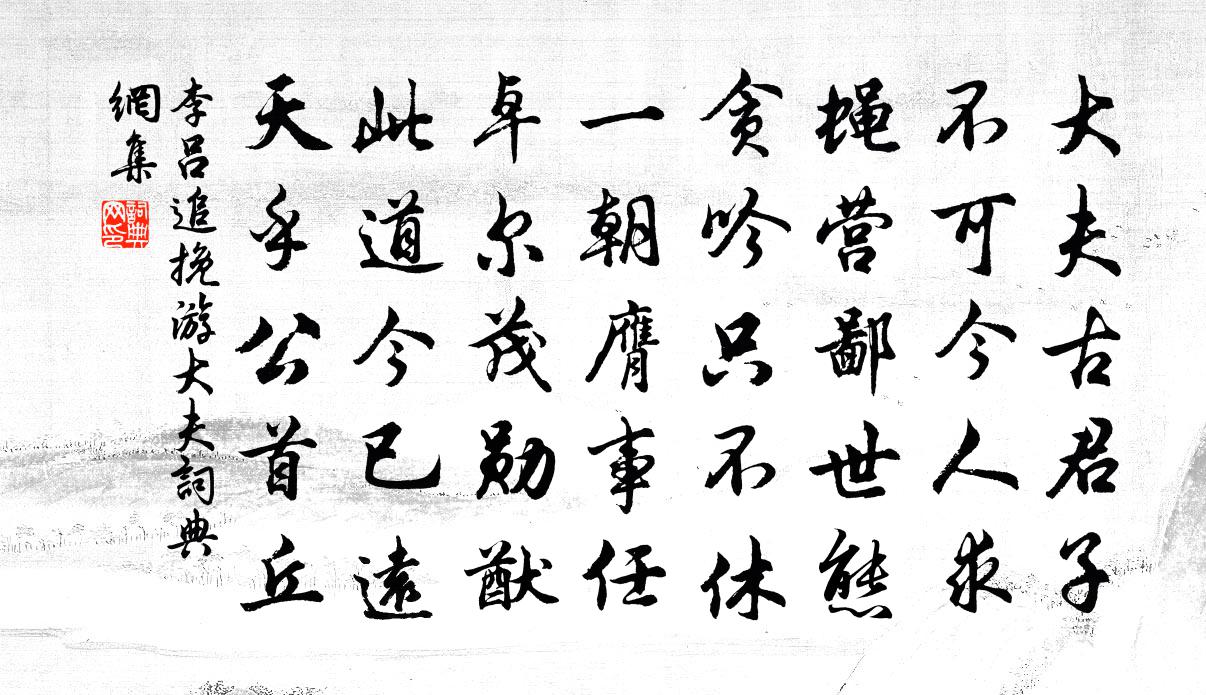 大夫古君子
不可今人求
蝇营鄙世態
贪吟只不休
一朝膺事任
卓尔茂勋猷
此道今已遠
天乎公首丘
李吕追挽游大夫詞典
網集
詞典
网印